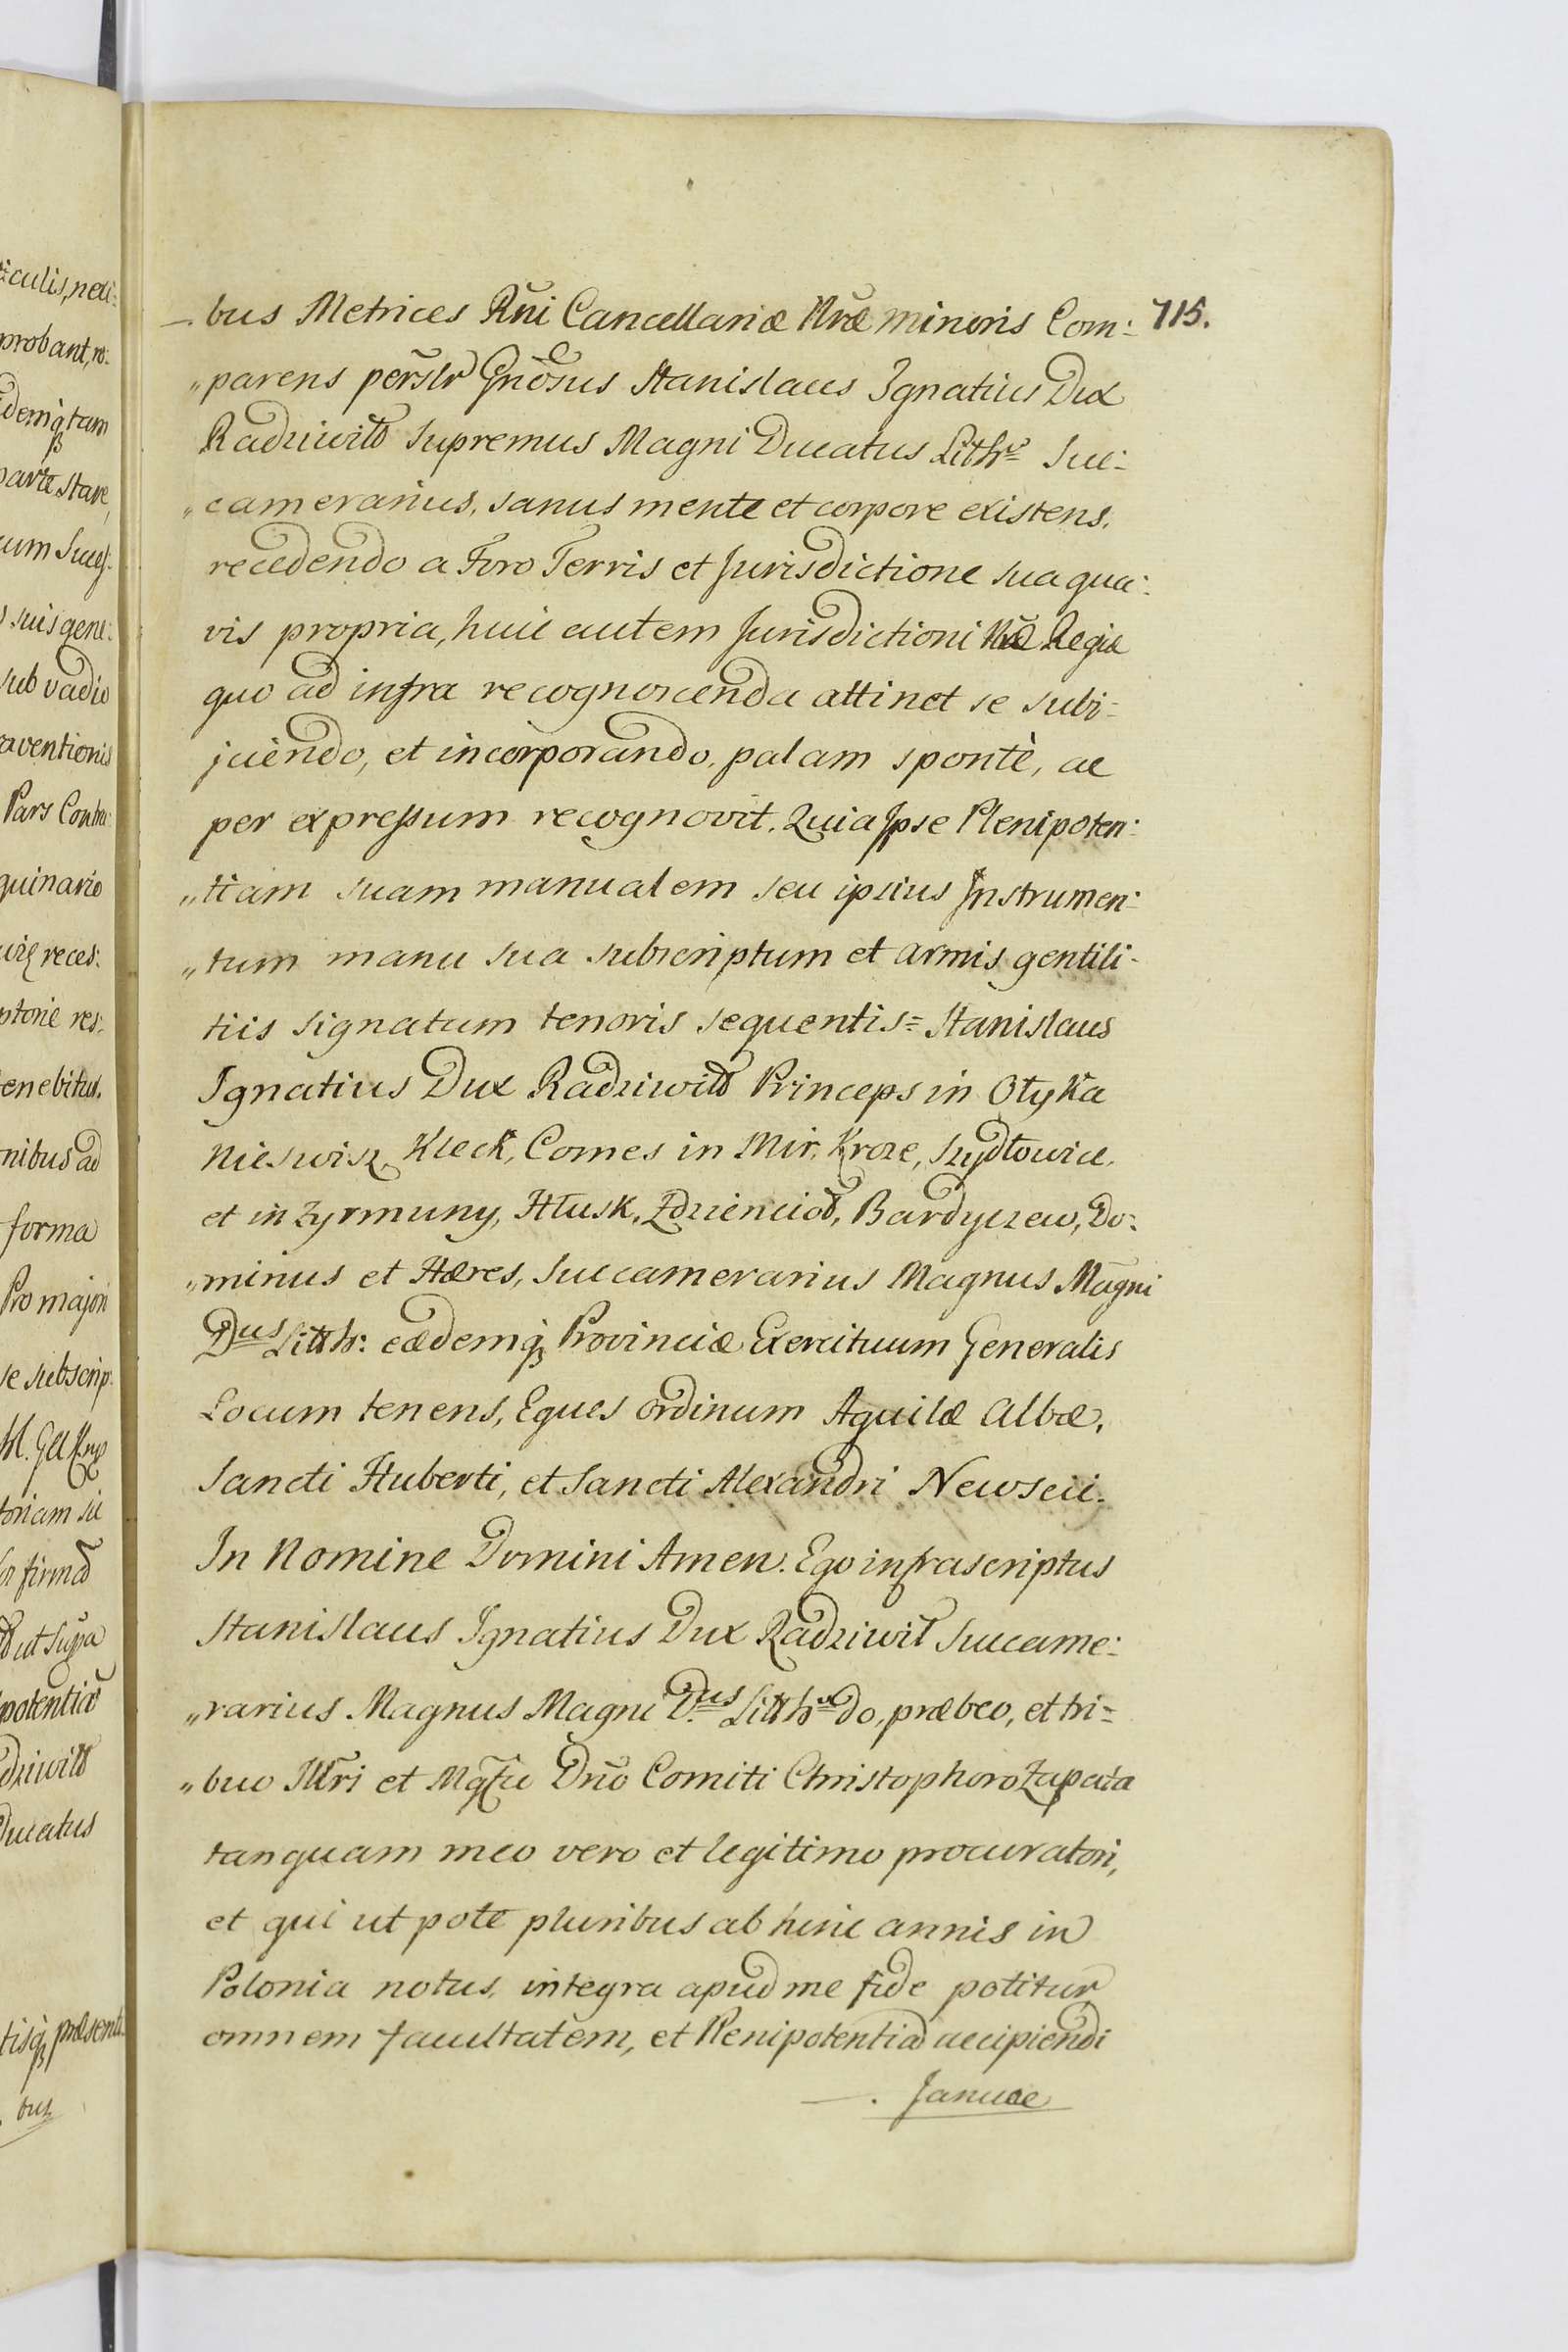 715.
bus Metrices Rñi Cancellariæ Nræ minoris Com:
„parens perslr Gnõsus Stanislaus Ignatius Dux
Radziwiłł Supremus Magni Ducatus Lithæ Suc:
„camerarius, sanus mente et corpore existens,
recedendo a Foro Terris et Jurisdictione sua qua:
vis propria, huic autem Jurisdictioni Nræ Regiæ
quo ad infra recognoscenda attinet se subi:
jciendo, et incorporando, palam sponte, ac
per expressum recognovit. Quia Ipse Plenipoten:
„tiam suam manualem seu ipsius Instrumen:
„tum manu sua subscriptum et armis gentili:
tiis signatum tenoris sequentis= Stanislaus
Ignatius Dux Radziwiłł Princeps in Ołyka
Nieswisz, Kleck, Comes in Mir, Kroze, Szydłowice,
et in Zyrmuny, Hłusk, Zdziencioł, Bardyczew, Do:
„minus et Hæres, Succamerarius Magnus Magni
Dus Litth: eædemq Provinciæ Exercituum Generalis
Locum tenens, Eques ordinum Aquilæ Albæ,
Sancti Huberti, et Sancti Alexandri Newscii.
In Nomine Domini Amen. Ego infrascriptus
Stanislaus Ignatius Dux Radziwił Succame:
„rarius Magnus Magni Dus Litthæ do, præbeo, et tri=
„buo Illri et Mgfco Dño Comiti Christophoro Zapata
tanquam meo vero et legitimo procuratori,
et qui ut pote pluribus ab hinc annis in
Polonia notus, integra apud me fide potitur
omnem facultatem, et Plenipotentiã accipiendi
Januae
:culis, nexi:
probant, ro:
demq tam
parte stare,
cum Succes:
suis gene:
sub vadio
raventionis
Pars Contra
quinario
reces:
ptorie res:
tenebitur.
nibus ad
forma
Pro majori
se subscrip:
toriam sic
firmã
ut supra
potentiã
dziwiłł
Ducatus
tisq præsenti
bus